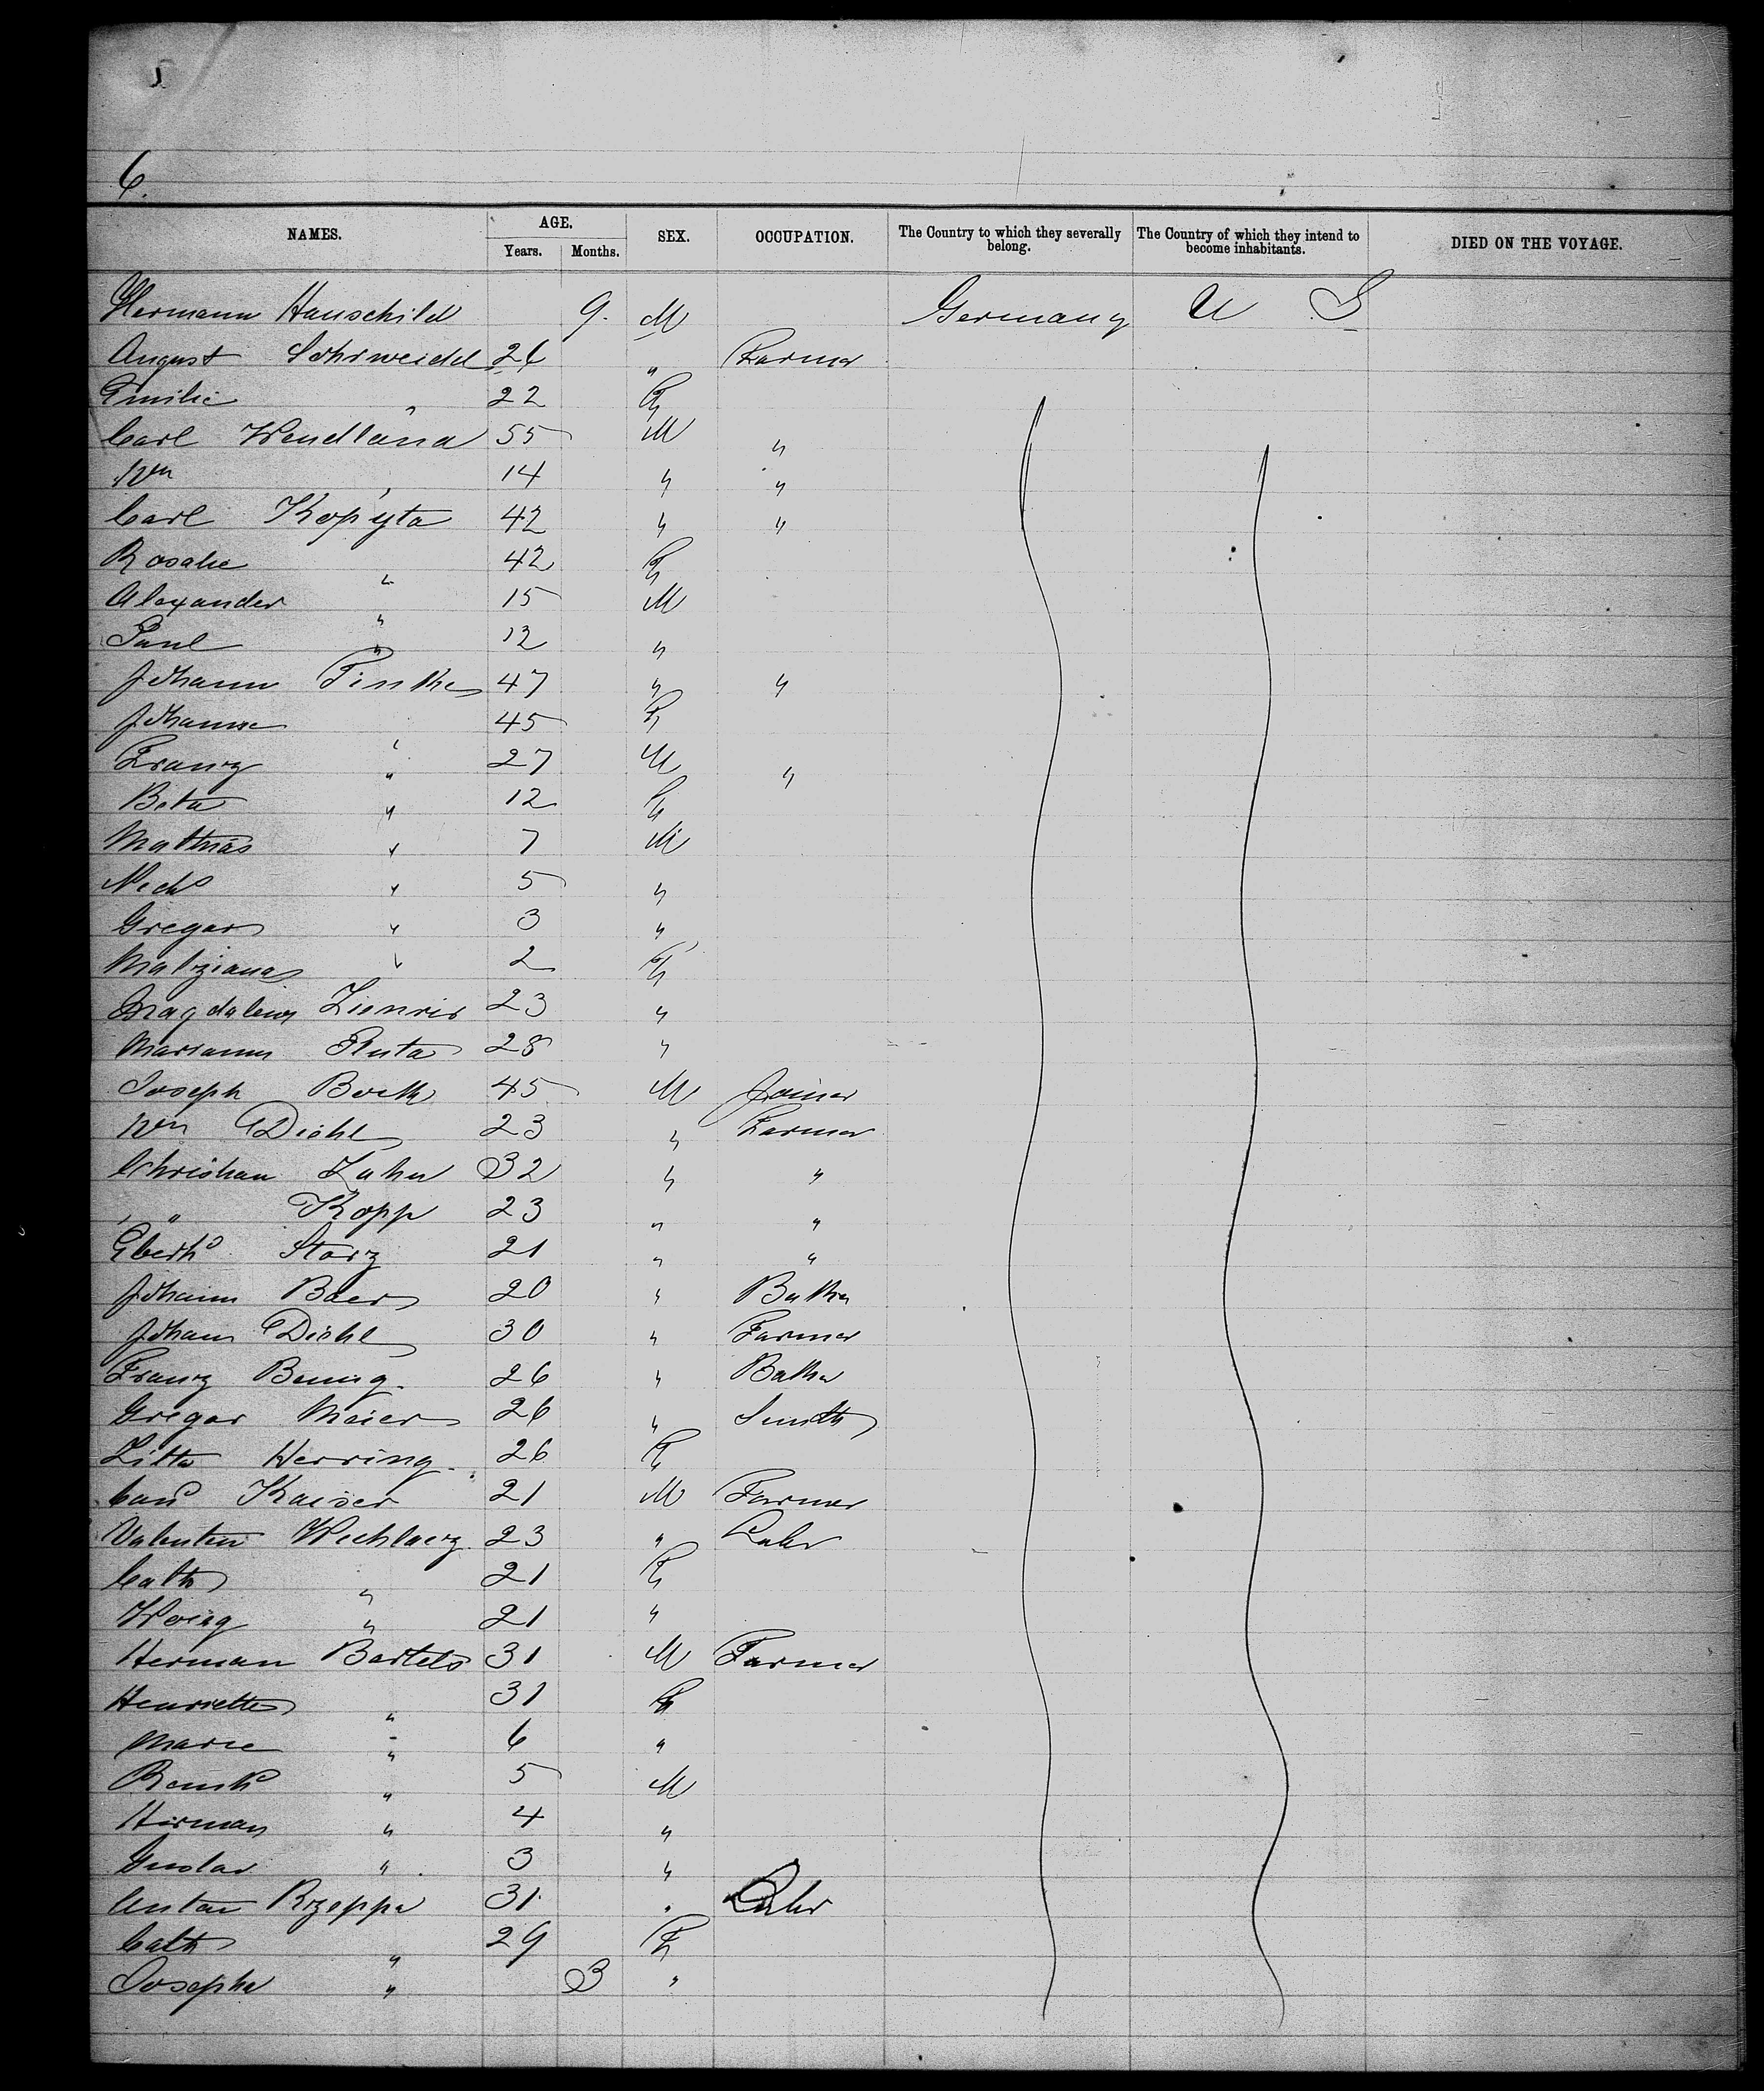 6.
NAMES. AGE. SEX. OCCUPATION. The Country to which they severally belong. The Country of which they intend to become inhabitants. DIED ON THE VOYAGE.
Years. Months.
Hermann Hauschild 9. M Germany U S
August 26 " Farmer
Emilie " 22 F
Carl Wendland 55 M "
Wm " 14 " "
Carl Kopyta 42 " "
Rosalie " 42 F
Alexander " 15 M
Paul " 12 "
Johann 47 " "
Johanne " 45 F
Franz " 27 M "
Beta " 12 F
Mathias " 7 M
" 5 "
Gregor " 3 "
" 2 F
23 "
28 "
Joseph 45 M Joiner
Wm Diehl 23 " Farmer
Christian Zahn 32 " "
" Kopp 23 " "
Eberhd Storz 21 " "
Johann Baer 20 "
Johann Diehl 30 " Farmer
Franz 26 "
Gregor Meier 26 " Smith
Herring 26 F
Kaiser 21 M Farmer
Valentin 23 " Labr
Cath " 21 F
" 21 "
Herman Bartels 31 M Farmer
Henriette " 31 F
Marie " 6 "
" 5 M
Herman " 4 "
Gustav " 3 "
Anton Rzeppa 31 " Labr
Cath " 29 F
Josepha " 3 "